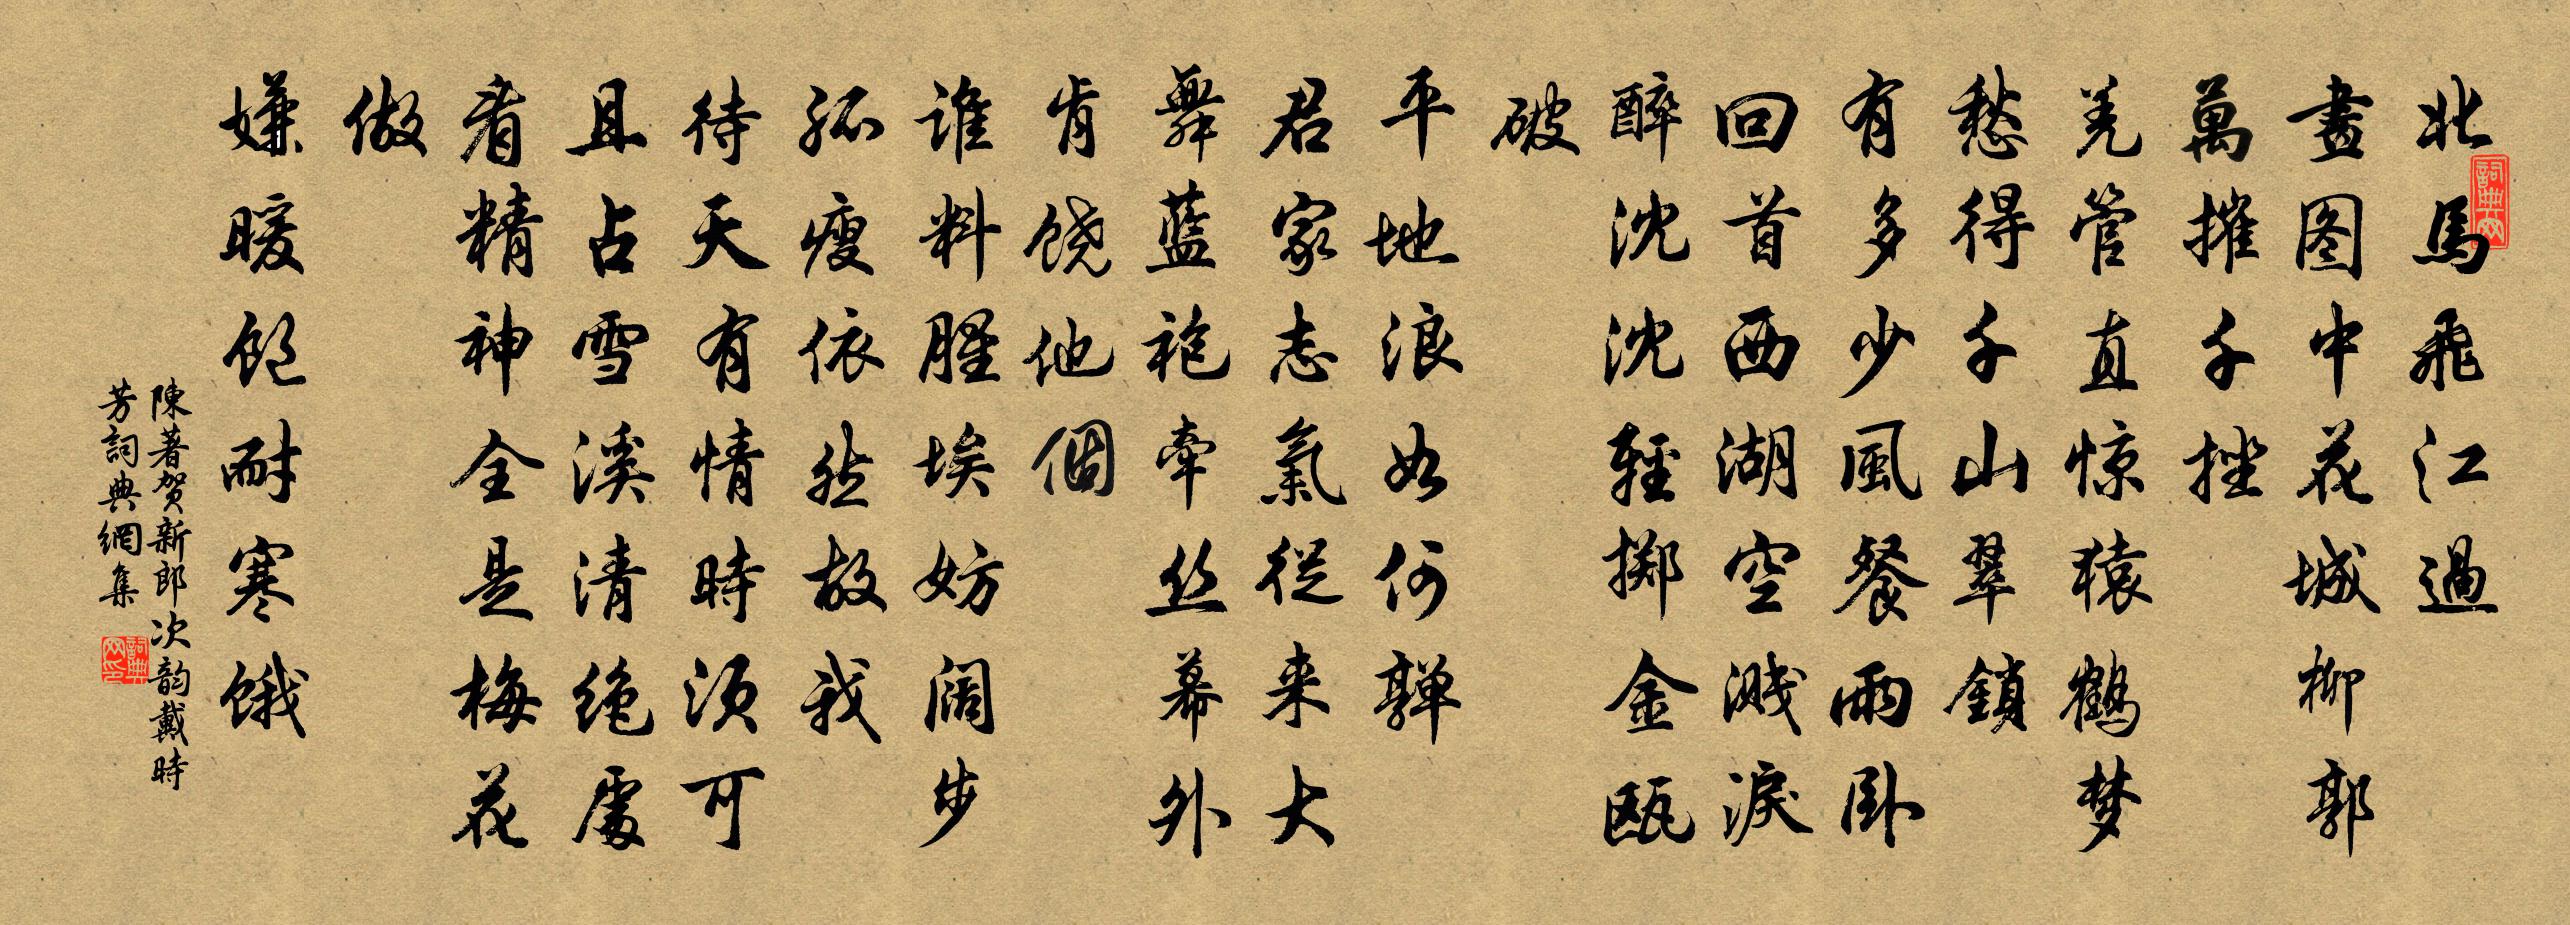 北馬飛江過
畫图中花城柳郭
萬摧千挫
羌管直惊猿鶴梦
愁得千山翠鎖
有多少風餐雨卧
回首西湖空溅淚
醉沈沈輕掷金瓯
破
平地浪如何亸
君家志氣從来大
舞蓝袍牵丝幕外
肯饶他個
谁料腥埃妨阔步
孤瘦依然故我
待天有情時须可
且占雪溪清绝處
看精神全是梅花
做
嫌暖饱耐寒饿
陳著贺新郎次韵戴時
芳詞典網集
詞典网
詞典网印